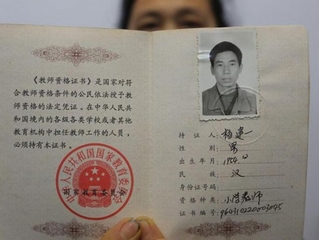 《教师资格证书》是国家对符
合教师资格条件的公民依法授予教
师资格的法定凭证。在中华人民共
和国境内的各级各类学校或者其他
教育机构中担任教师工作的人员,
必须持有本证书。
中华人民共和国国家教育委员会
持证人
性别 男
出生年月
民族 汉
身份证号码
资格种类 小学教师
证书号码